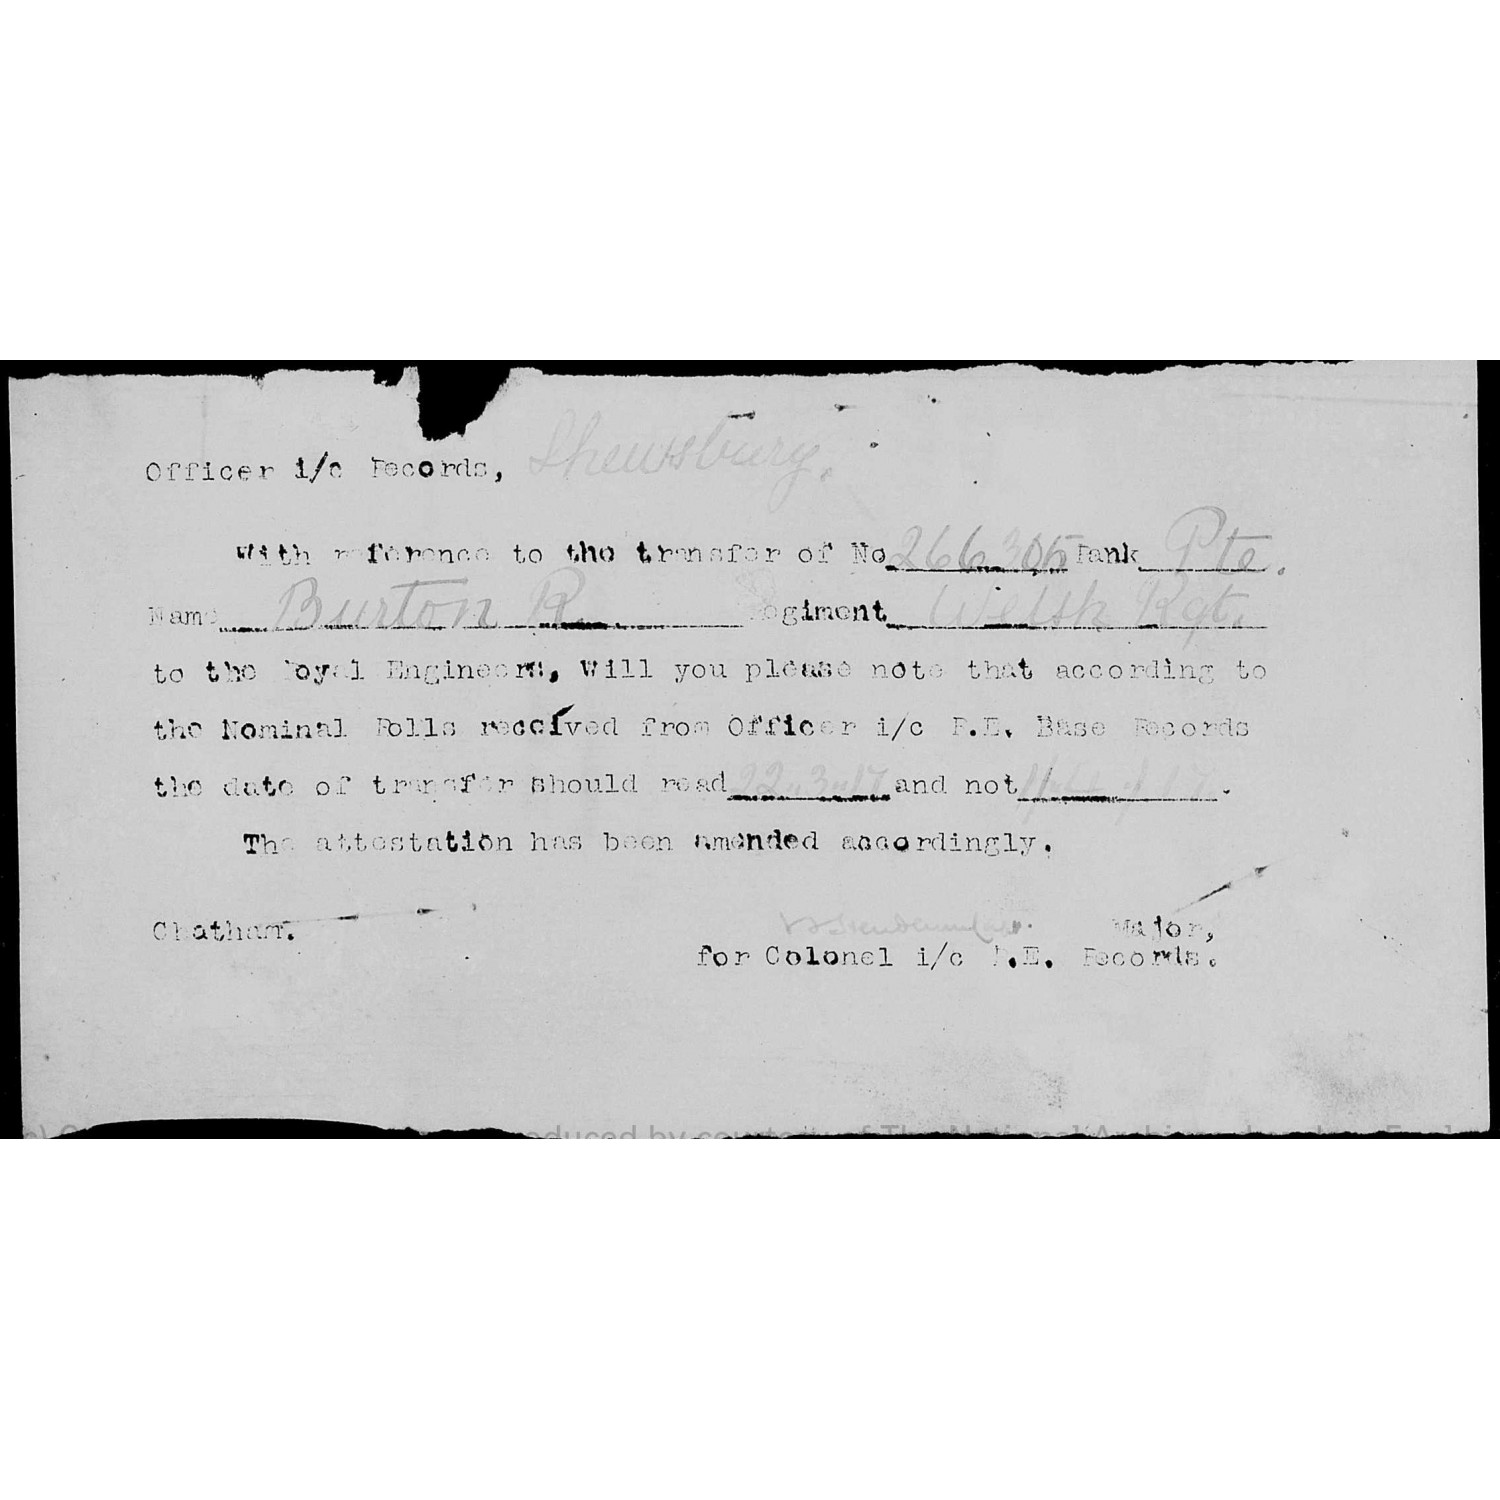 Officer i/c Records, Shewsbury.
With reference to the transfer of No 266305 Rank Pte.
Name Burton R. Regiment Welsh Rgt.
to the Royal Engineers, Will you please note that according to
the Nominal Rolls received from Officer i/c R.E. Base Records
the date of transfer should read 22.3.17 and not
The attestation has been amended accordingly.
Chatham. Major,
for Colonel i/c R.E. Records.